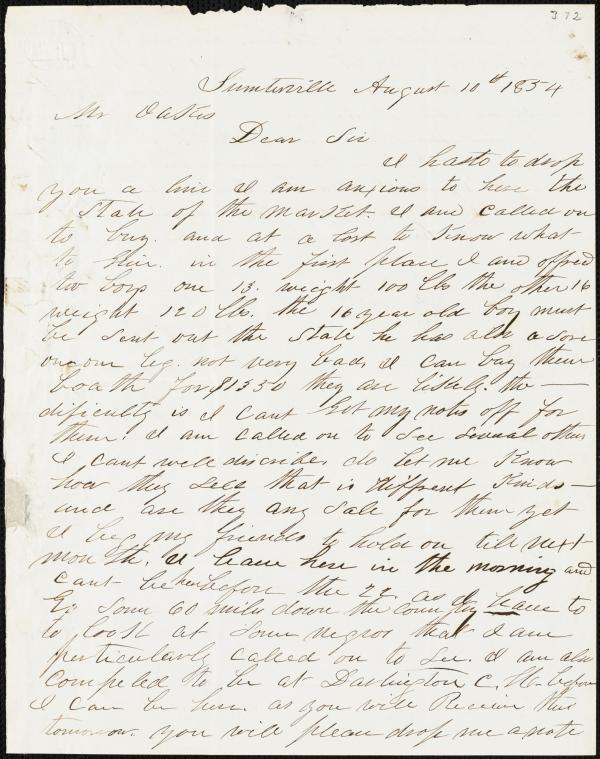 372
Sumterville August 10th 1854
Mr Oakes
Dear Sir
I hasto to drop
you a line I am anxious to here the
State of the market. I am called on
to buy. and at a lost to Know what
to give. in the first place I am offred
two boys one 13. weight 100 lbs the other 16
weight 120 lbs. the 16 year old boy must
be sent out the State he has also a sore
on one leg. not very bad, I can buy them
boath for $1350 they are likely. the —
difficulty is I cant get my notes off for
them. I am called on to see several others
I cant well discribe, do let me Know
how they sell that is diffrent Kinds —
and are they any sale for them yet
I beg my friends to hold on till next
month. I leave here in the morning and
cant be here before the 22 as I have to
Go some 60 miles down the country
to look at some negros that I am
perticularly called on to see. I am also
compeled to be at Darlington C. H. before
I can be here. as you will Receive this
tomorrow. you will please drop me a note